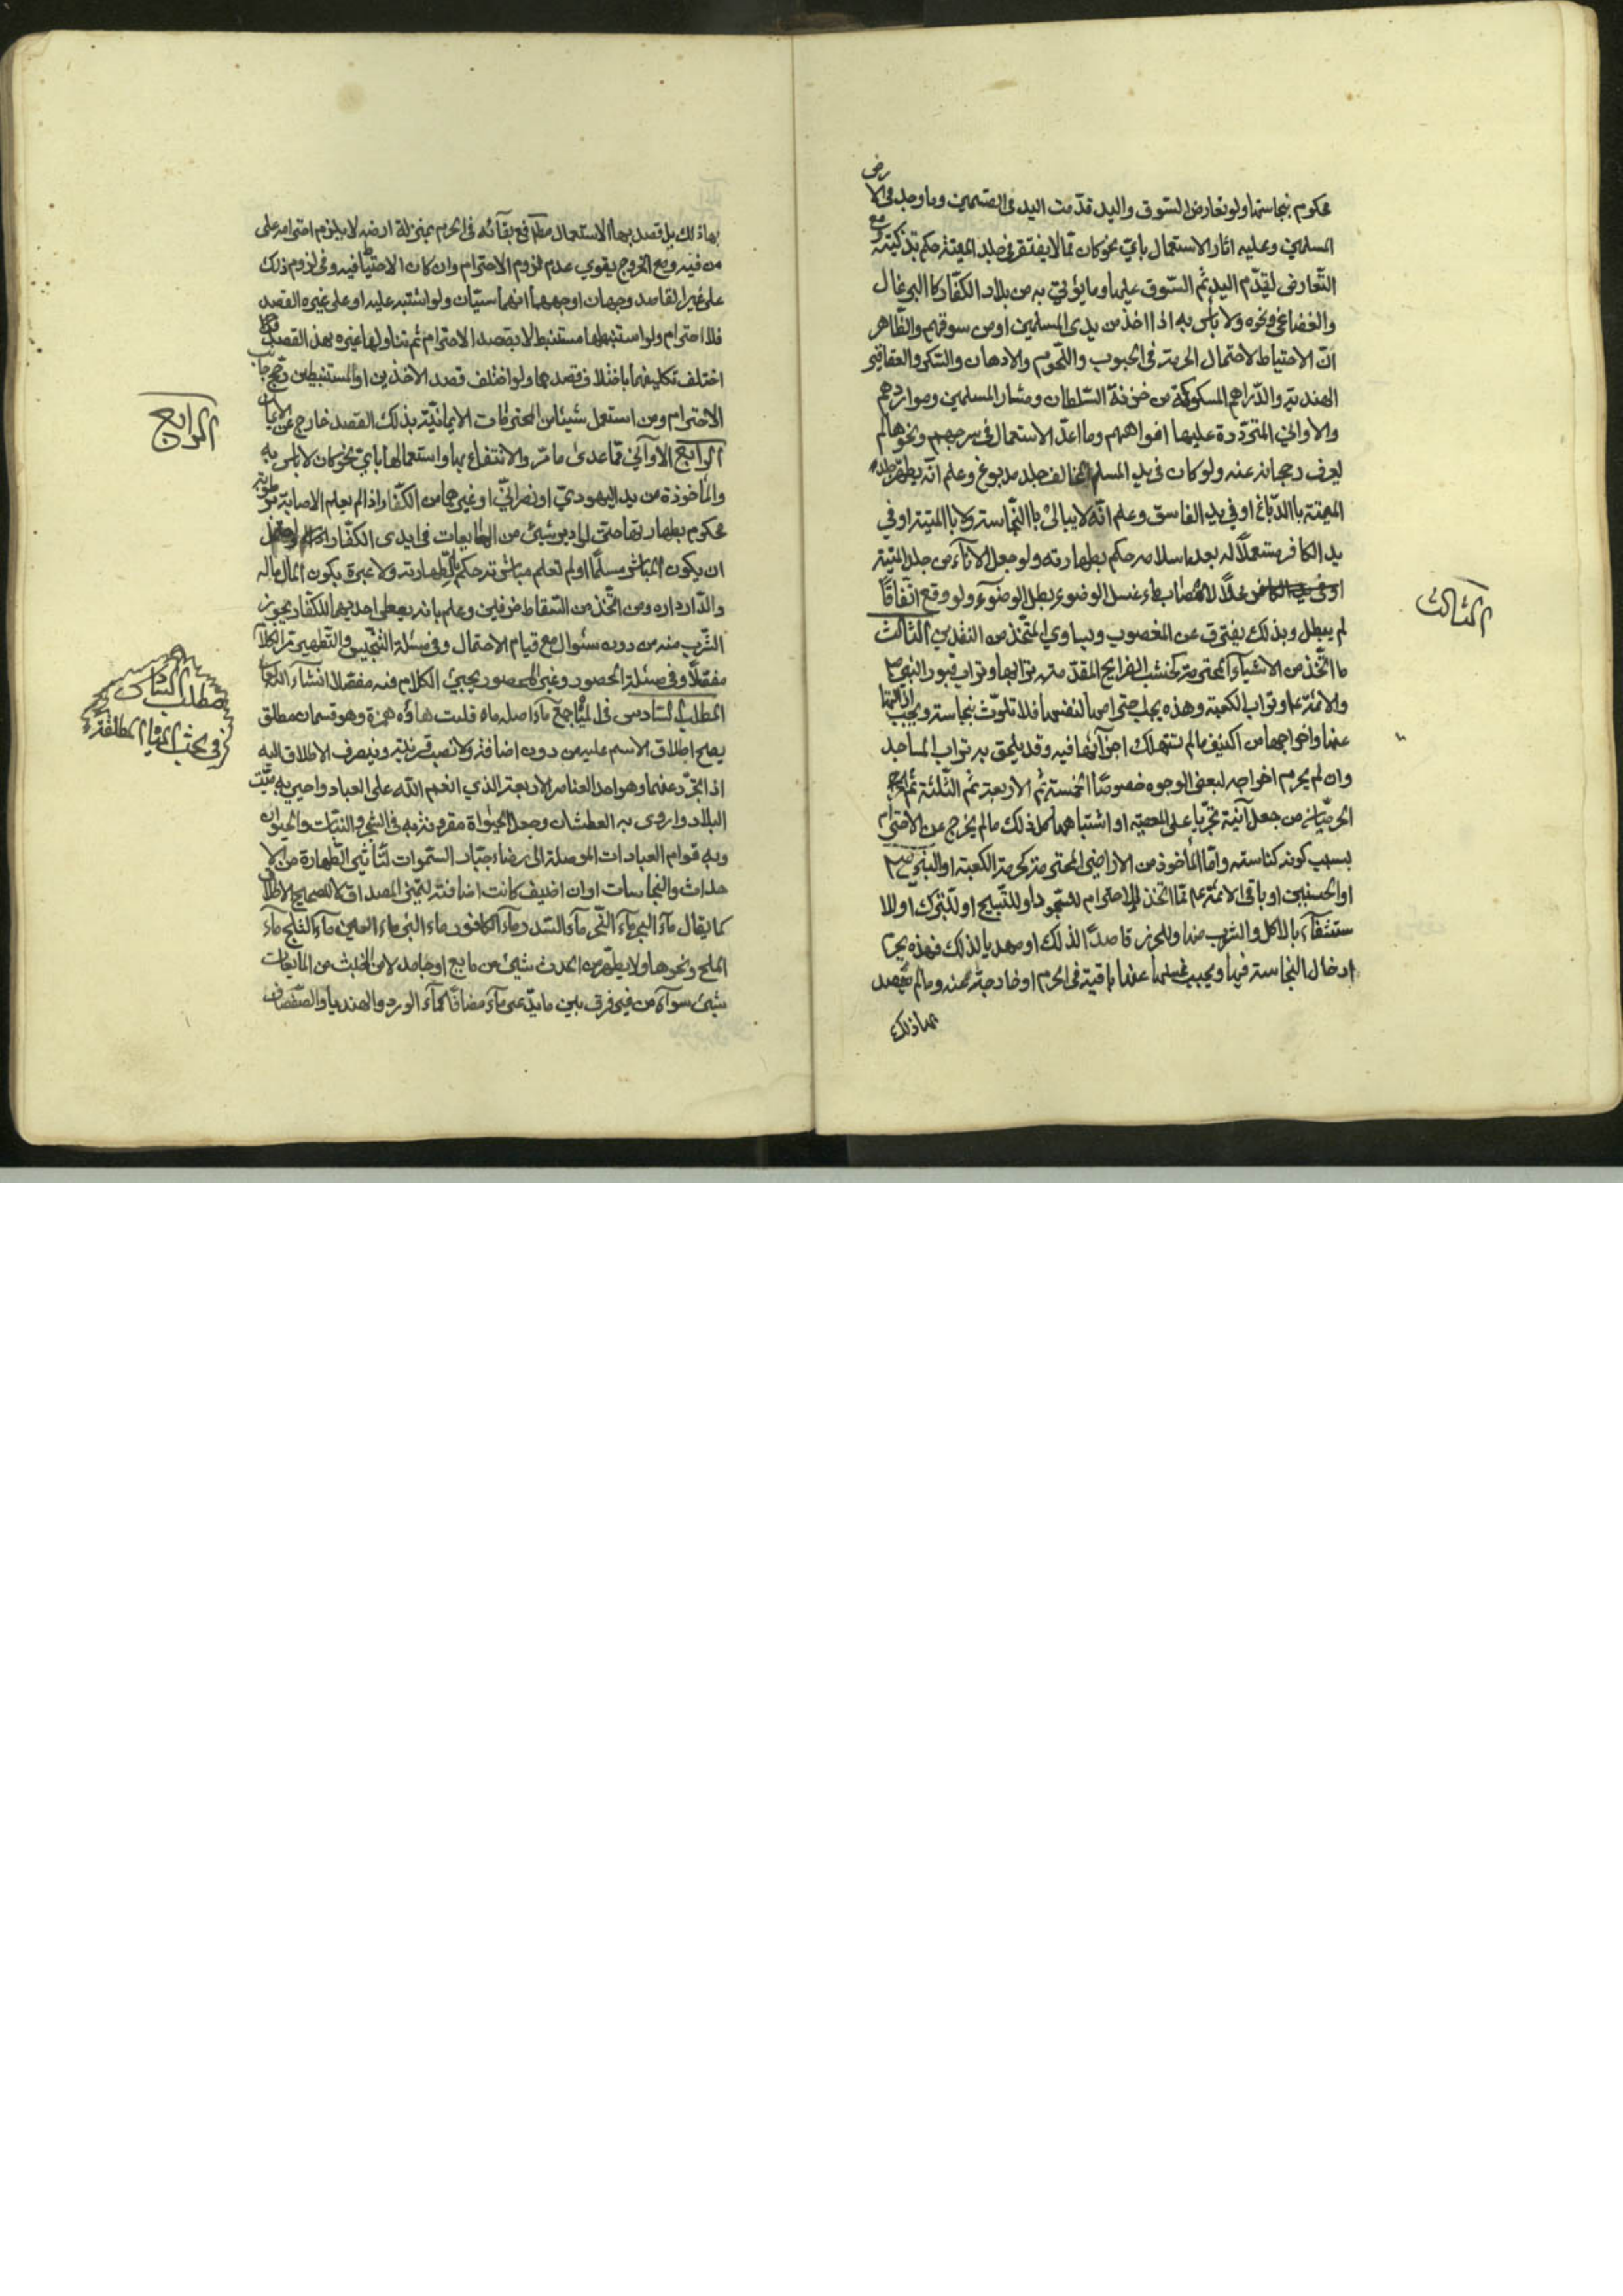 محكوم بنجاستها ولو تعارض السوق واليد قدّمت اليد في القسمين وما وجد في الارض
المسلمين وعليه اثار الاستعمال بايّ نحو كان ممّا لا يفتقر في جلد الميتة حكم بتذكيته ومع
التّعارض يقدّم اليد ثم السّوق عليها وما يؤتى به من بلاد الكفّار كالبرغال
والغضاغي ونحوه ولا بأس به اذا اخذ من يدى المسلمين او من سوقهم والظّاهر
انّ الاحتياط لاحتمال الحرمة في الحبوب واللّحوم والادهان والسّكر والعقاقير
الهندية والدّراهم المسكوكة من خزنة السّلطان وعشار المسلمين ومواردهم
والاواني المتردّدة عليها افواههم وما اعدّ الاستعمال في سرجهم ونحوها لم
يعرف رجحانه عنه ولو كان في يد المسلم المخالف جلد مدبوغ وعلم انّه يطهّر جلد
الميتة بالدّباغ او في يد الفاسق وعلم انّه لا يبالي بالنّجاسة ولا بالميتة او في
يد الكافر مستعملاً له بعد اسلامه حكم بطهارته ولو جعل الاناء من جلد الميتة
عملاً لانصباب ماء غسل الوضوء بطل الوضوء ولو وقع اتّفاقاً
لم يبطل وبذلك يفترق عن المغصوب ويساوي المتّخذ من النقدين الثالث
ما اتّخذ من الاشياء المحترمة كخشب الضرايح المقدّمة وترابها وتراب قبور النبي ص
والائمّة ع وتراب الكعبة وهذه يجب احترامها لنفسها فلا تلوّث بنجاسة ويجب ازالتها
عنها واخراجها من الكنيف ما لم تستهلك اجزائها فيه وقد يلحق به تراب المساجد
وان لم يحرم اخراجه لبعض الوجوه خصوصاً الخمسة ثم الاربعة ثم الثّلثة ثم الحرم
الحرميّات من جعل آنية تجرّياً على المعصية او اشتباهها كل ذلك ما لم يخرج عن الاحترام
بسبب كونه كناسة وامّا المأخوذ من الاراضي المحترمة كحرمة الكعبة او النبي ص
او الحسنين او باقي الائمّة ع ممّا اتخذ للاحترام للسّجود او للتّسبيح او للتّبرّك او للا
ستشفاء بالاكل والشرب منها وللحرز قاصداً لذلك او مهدياً لذلك فهذه يحرم
ادخال النجاسة فيها ويجب غسلها عنها باقية في الحرم او خارجة عنه وما لم يقصد
بهاذلك
الثالث
بهاذلك بل قصد بها الاستعمال مطلقا فمع بقائه في الحرم بمنزلة ارضه لا يلزم احترامه على
من فيه ومع الخروج يقوي عدم لزوم الاحترام وان كان الاحتياط فيه وفي لزوم ذلك
على غير القاصد وجهان اوجههما انهما سيّان ولو اشتبه عليه او على غيره القصد
فلا احترام ولو استنبطها مستنبط لا بقصد الاحترام ثم تناولها غيره بهذا القصد
اختلف تكليفهما باختلاف قصدهما ولو اختلف قصد الاخذين او المستنبطين رجّح جانب
الاحترام ومن استعمل شيئا من المحترمات الايمانيّة بذلك القصد خارج عن الايمان
الرابع الاواني ممّا عدى ما مرّ والانتفاع بها واستعمالها بايّ نحو كان لا باس به
والمأخوذة من يد اليهوديّ او نصرانيّ او غيرهما من الكفّار اذا لم يعلم الاصابة برطوبة
محكوم بطهارتها حتى لو اد شئ من المايعات في ايدى الكفّار
ان يكون المباشر مسلماً او لم تعلم مباشرته حكم بطهارته ولا عبرة بكون المال ماله
والدّار داره ومن اتّخذ من السّقاط ظرفين وعلم بانه يعطى احديهما للكفّار يجوز
الشّرب منه من دون سئوال مع قيام الاحتمال وفي مسئلة التنجيس والتّطهير مرّ الكلام
مفصّلاً وفي مسئلة المحصور وغير المحصور يجيئ الكلام فيه مفصّلا انشاء الله تعالى
المطلب السّادس في المياه جمع ماء اصله ماه قلبت هاؤه همزة وهو قسمان مطلق
يصحّ اطلاق الاسم عليه من دون اضافة ولا نصب قرينة وينصرف الاطلاق اليه
اذا تجرّد عنها وهو احد العناصر الاربعة الذي انعم الله على العباد واحيى به ميّت
البلاد واروى به العطشان وجعل الحيواة مقرونة به في الشجر والنّبات والحيوان
وبه قوام العبادات الموصلة الى رضاء جبّار السّموات لتأثير الطّهارة من الا
حداث والنّجاسات او ان اضيف كانت اضافته لتميز المصداق لا لتصحيح الاطلاق
كما يقال ماء البحر ماء النّهر ماء السّدر وماء الكافور ماء البئر ماء العين ماء الثلج ماء
الملح ونحوها ولا يطهّر من الحدث شئ من مايع او جامد لا من الخبث من المايعات
شئ سواه من غير فرق بين ما يدّعى ماء مضافاً كماء الورد والهندباء والصّفصاف
الرابع
مطلب السّادس
في بحث المياه المطلقة